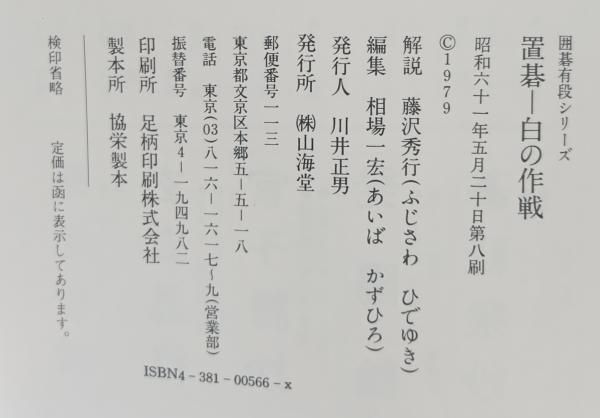 囲碁有段シリーズ
置碁―白の作戦
昭和六十一年五月二十日第八刷
©1979
解説 藤沢秀行(ふじさわ ひでゆき)
編集 相場一宏(あいば かずひろ)
発行人 川井正男
発行所 ㈱山海堂
郵便番号一一三
東京都文京区本郷五―五―一八
電話 東京(03)八一六―一六一七~九(営業部)
振替番号 東京4―一九四九八二
印刷所 足柄印刷株式会社
製本所 協栄製本
検印省略 定価は函に表示してあります。
ISBN4-381-00566-x